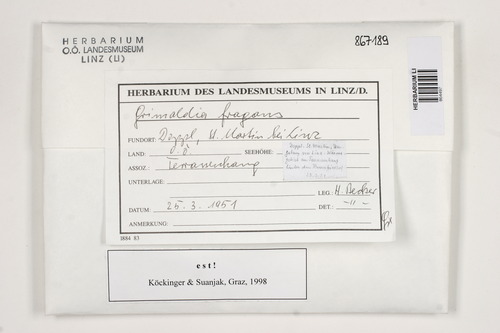 HERBARIUM
O.Ö. LANDESMUSEUM
LINZ (LI)
867189
HERBARIUM LI
HERBARIUM DES LANDESMUSEUMS IN LINZ/D.
Grimaldia fragans
FUNDORT: Deppl, St. Martin bei Linz
LAND: O.Ö.
SEEHÖHE:
ASSOZ.: Terrassenhang
UNTERLAGE:
LEG.: H. Becker
DATUM: 25. 3. 1951
DET.: -"-
ANMERKUNG:
1884 83
est!
Köckinger & Suanjak, Graz, 1998